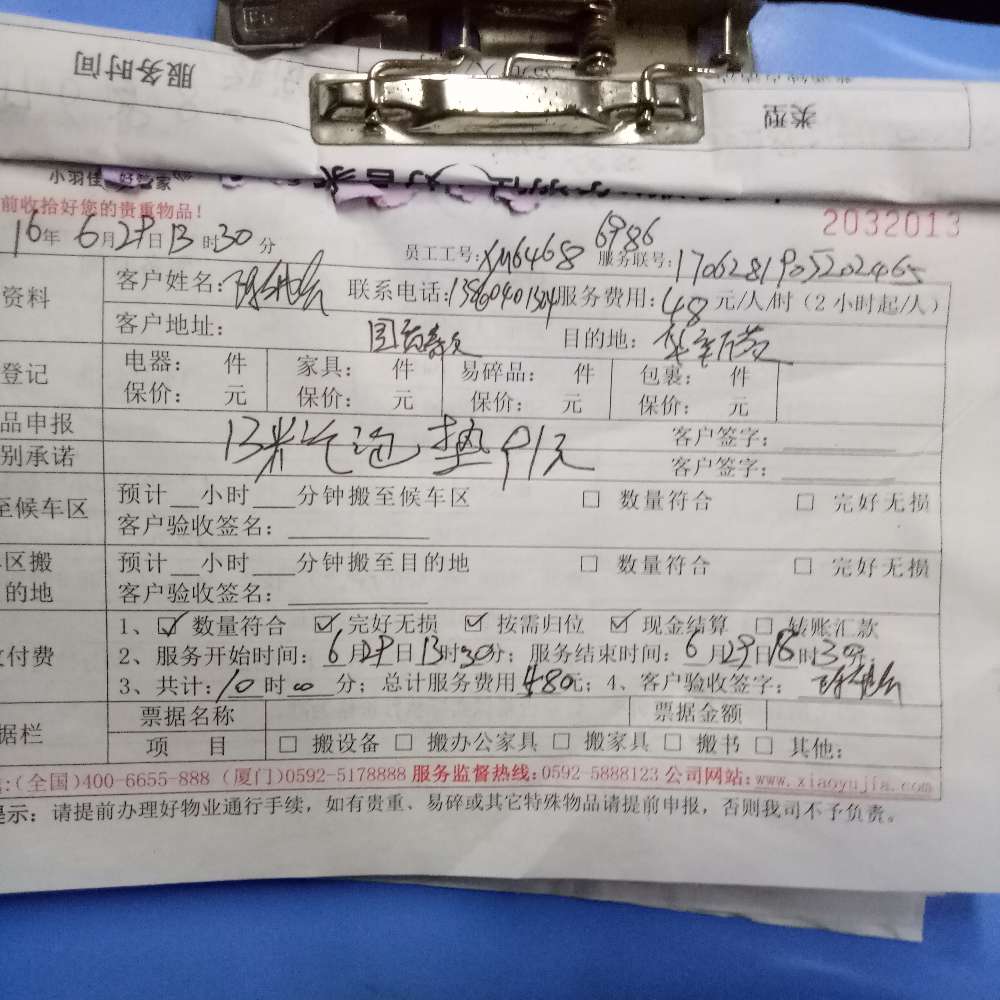 服务时间
类型
小羽佳 好管家
前收拾好您的贵重物品!
2032013
16年 6月29日13时30分 员工工号:XM6468 6986 服务联号:1706281905202465
资料 客户姓名: 联系电话:13860401304 服务费用:48元/人/时(2小时起/人)
客户地址: 目的地:
登记 电器: 件 家具: 件 易碎品: 件 包裹: 件
保价: 元 保价: 元 保价: 元 保价: 元
品申报 客户签字:
13米气泡垫91元
别承诺 客户签字:
至候车区 预计__小时___分钟搬至候车区 □ 数量符合 □ 完好无损
客户验收签名:
区搬 预计__小时___分钟搬至目的地 □ 数量符合 □ 完好无损
的地 客户验收签名:
1、☑ 数量符合 ☑ 完好无损 ☑ 按需归位 ☑ 现金结算 □ 转账汇款
付费 2、服务开始时间:6月29日13时30分;服务结束时间:6月29日18时30分
3、共计:10时00分;总计服务费用480元;4、客户验收签字:
票据名称 票据金额
据栏 项 目 □ 搬设备 □ 搬办公家具 □ 搬家具 □ 搬书 □ 其他:
:(全国)400-6655-888 (厦门)0592-5178888 服务监督热线:0592-5888123 公司网站:www.xiaoyujia.com
提示:请提前办理好物业通行手续,如有贵重、易碎或其它特殊物品请提前申报,否则我司不予负责。